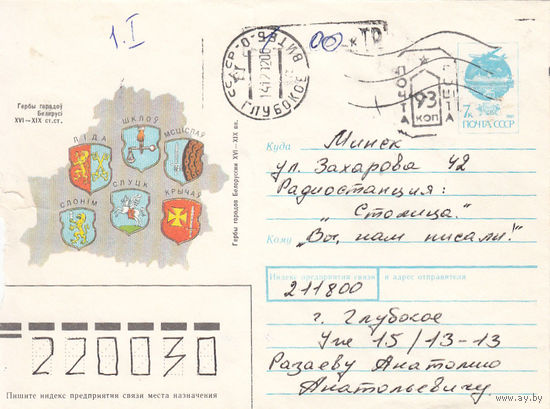 1.I
00 к
Гербы гарадоў
Беларусі
XVI–XIX ст.ст.
ЛІДА
ШКЛОЎ
МСЦІСЛАЎ
СЛОНІМ
СЛУЦК
КРЫЧАЎ
Гербы городов Белоруссии XVI–XIX вв.
СССР
ГЛУБОКОЕ
ПОЧТА
93
КОП
7к
ПОЧТА СССР
Куда Минск
ул. Захарова 42
Радиостанция:
„Столица."
Кому „Вы, нам писали!"
Индекс предприятия связи и адрес отправителя
211800
г. Глубокое
15/13-13
Разаеву Анатолию
Анатольевичу
220030
Пишите индекс предприятия связи места назначения
www.ay.by